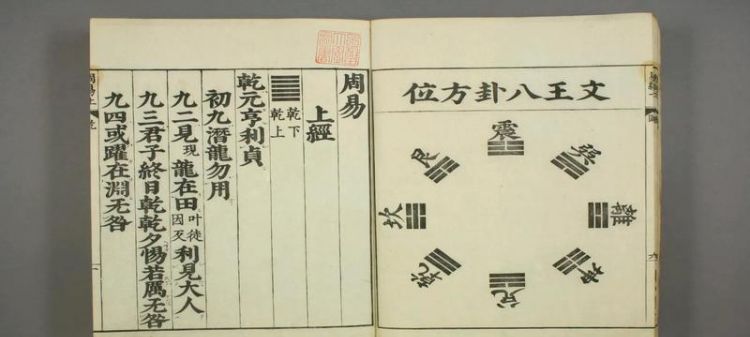 文王八卦方位
震
巽
離
坤
兌
乾
坎
艮
六
周易
上經
䷀乾下乾上
乾元亨利貞
初九潛龍勿用
九二見現龍在田叶徒因反利見大人
九三君子終日乾乾夕惕若厲无咎
九四或躍在淵无咎
周易上
一